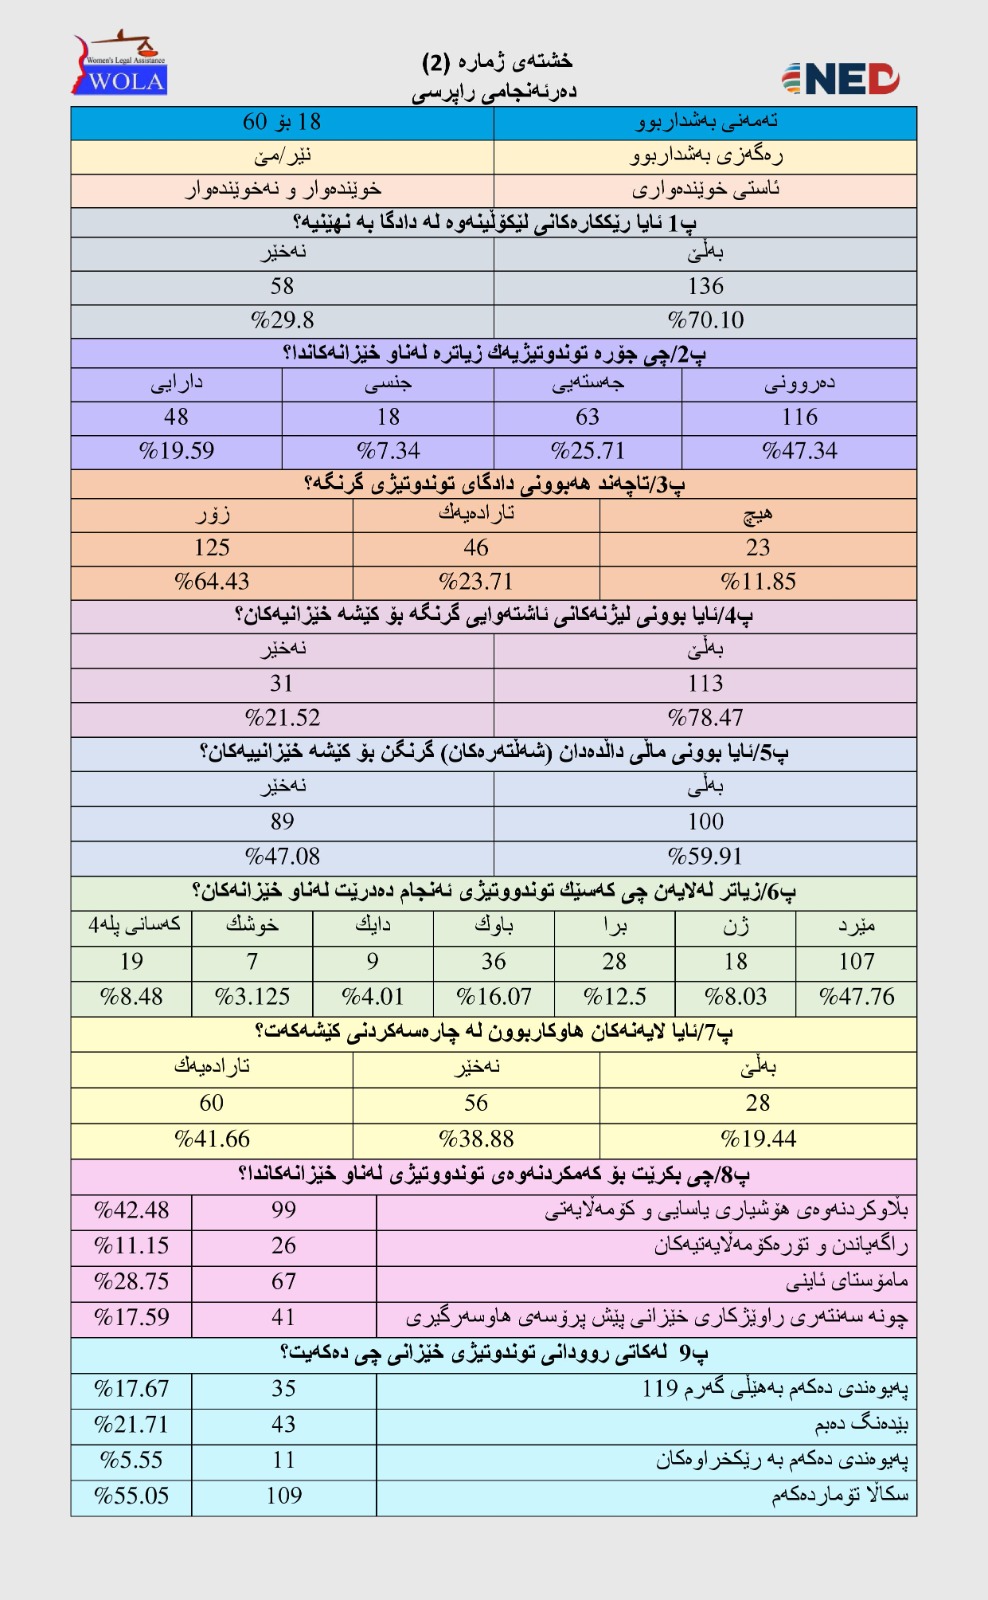 Women's Legal Assistance
WOLA
NED
خشتەی ژمارە (2)
دەرئەنجامی راپرسی
تەمەنی بەشداربوو 18 بۆ 60
رەگەزی بەشداربوو نێر/مێ
ئاستی خوێندەواری خوێندەوار و نەخوێندەوار
پ1 ئایا رێککارەکانی لێکۆڵینەوە لە دادگا بە نهێنیە؟
بەڵێ نەخێر
136 58
%70.10 %29.8
پ2/چی جۆرە توندوتیژیەك زیاترە لەناو خێزانەکاندا؟
دەروونی جەستەیی جنسی دارایی
116 63 18 48
%47.34 %25.71 %7.34 %19.59
پ3/تاچەند هەبوونی دادگای توندوتیژی گرنگە؟
هیچ تارادەیەك زۆر
23 46 125
%11.85 %23.71 %64.43
پ4/ئایا بوونی لیژنەکانی ئاشتەوایی گرنگە بۆ کێشە خێزانیەکان؟
بەڵێ نەخێر
113 31
%78.47 %21.52
پ5/ئایا بوونی ماڵی داڵدەدان (شەڵتەرەکان) گرنگن بۆ کێشە خێزانییەکان؟
بەڵی نەخێر
100 89
%59.91 %47.08
پ6/زیاتر لەلایەن چی کەسێك توندووتیژی ئەنجام دەدرێت لەناو خێزانەکان؟
مێرد ژن برا باوك دایك خوشك کەسانی پلە4
107 18 28 36 9 7 19
%47.76 %8.03 %12.5 %16.07 %4.01 %3.125 %8.48
پ7/ئایا لایەنەکان هاوکاربوون لە چارەسەکردنی کێشەکەت؟
بەڵێ نەخێر تارادەیەك
28 56 60
%19.44 %38.88 %41.66
پ8/چی بکرێت بۆ کەمکردنەوەی توندووتیژی لەناو خێزانەکاندا؟
بڵاوکردنەوەی هۆشیاری یاسایی و کۆمەڵایەتی 99 %42.48
راگەیاندن و تۆرەکۆمەڵایەتیەکان 26 %11.15
مامۆستای ئاینی 67 %28.75
چونە سەنتەری راوێژکاری خێزانی پێش پرۆسەی هاوسەرگیری 41 %17.59
پ9 لەکاتی روودانی توندوتیژی خێزانی چی دەکەیت؟
پەیوەندی دەکەم بەهێڵی گەرم 119 35 %17.67
بێدەنگ دەبم 43 %21.71
پەیوەندی دەکەم بە رێکخراوەکان 11 %5.55
سکاڵا تۆماردەکەم 109 %55.05